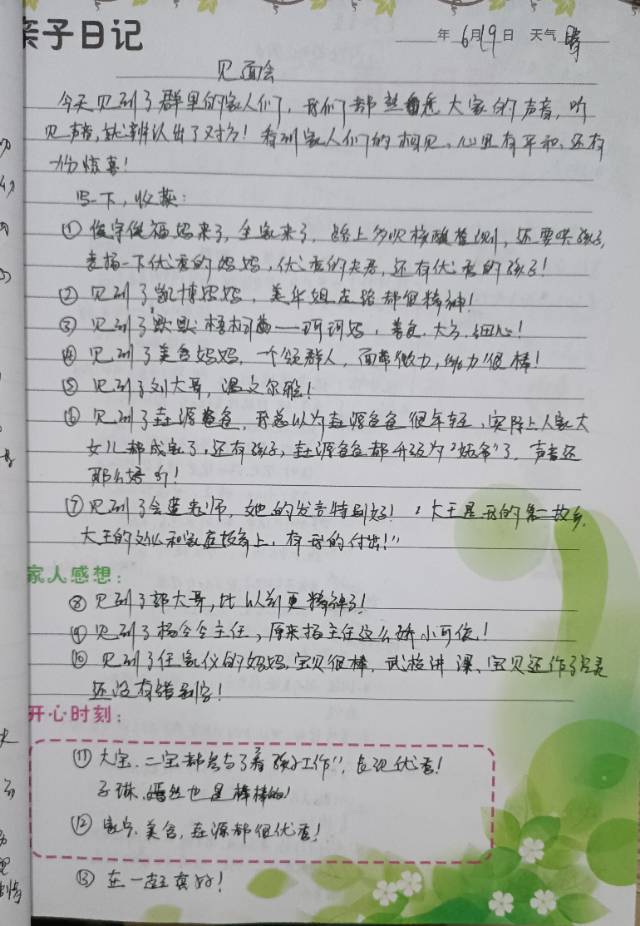 亲子日记
年 6月19日 天气 晴
见面会
今天见到了群里的家人们，我们都熟悉大家的声音，听
见声音，就辨认出了对方！看到家人们的相见，心里有平和，还有
一份惊喜！
写一下，收获：
① 俊宇俊福妈来了，全家来了，路上多次核酸检测，还要哄孩子，
表扬一下优秀的妈妈，优秀的夫君，还有优秀的孩子！
② 见到了凯博妈妈，美华姐左路都很精神！
③ 见到了 珂珂妈，善良，大方，细心！
④ 见到了美含妈妈，一个领群人，面带微力，能力很棒！
⑤ 见到了刘大哥，温文尔雅！
⑥ 见到了垚源爸爸，我总以为垚源爸爸很年轻，实际上人家大
女儿都成家了，还有孩子，垚源爸爸都升级为"姥爷"了，声音还
那么好听！
⑦ 见到了会苹老师，她的发言特别好！"大王是我的第二故乡，
大王的文化和家庭教育上，有我的付出！"
家人感想：
⑧ 见到了郭大哥，比以前更精神了！
⑨ 见到了杨会会主任，原来杨主任这么娇小可俊！
⑩ 见到了任家仪的妈妈，宝贝很棒，武松讲课，宝贝还作了
还没有错别字！
开心时刻：
⑪ 大宝，二宝都参与了看"孩子工作"，表现优秀！
子琳，嫣然也是棒棒的！
⑫ 美含，垚源都很优秀！
⑬ 在一起真好！